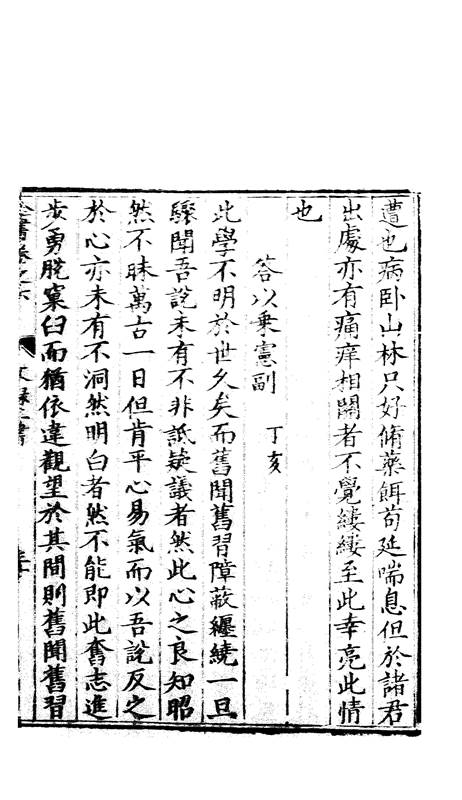 遭也病卧山林只好脩藥餌苟延喘息但於諸君
出處亦有痛痒相關者不覺縷縷至此幸亮此情
也
答以乘憲副 丁亥
此學不明於世久矣而舊聞舊習障蔽纏繞一旦
驟聞吾說未有不非詆疑議者然此心之良知昭
然不昧萬古一日但肯平心易氣而以吾說反之
於心亦未有不洞然明白者然不能即此奮志進
步勇脫窠臼而猶依違觀望於其間則舊聞舊習
書卷之六 文錄三書